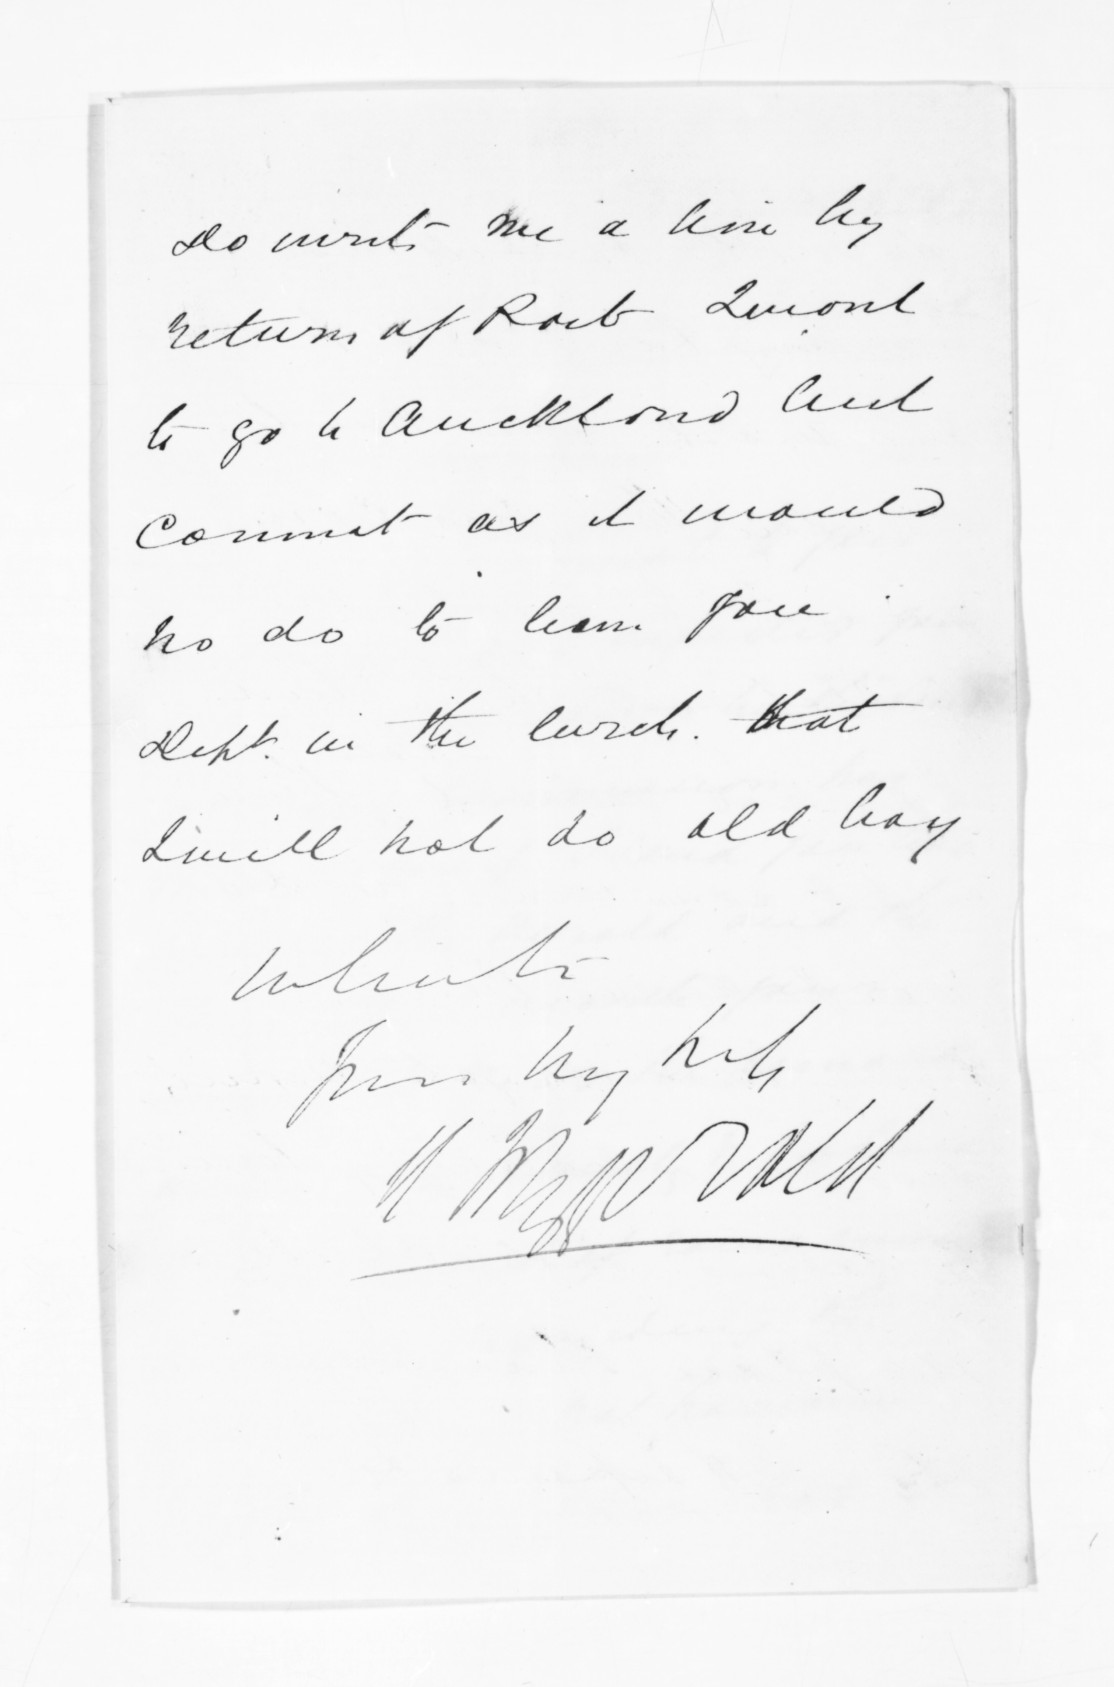 Do write me a line by
return of Post I want
to go to Auckland but
cannot as it would
no do to leave your
Dept. in the lurch. that
I will not do old boy
in haste
Yours